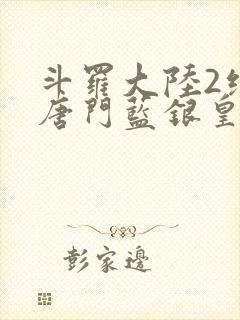 斗羅大陸2
唐門藍銀皇
彭家邊